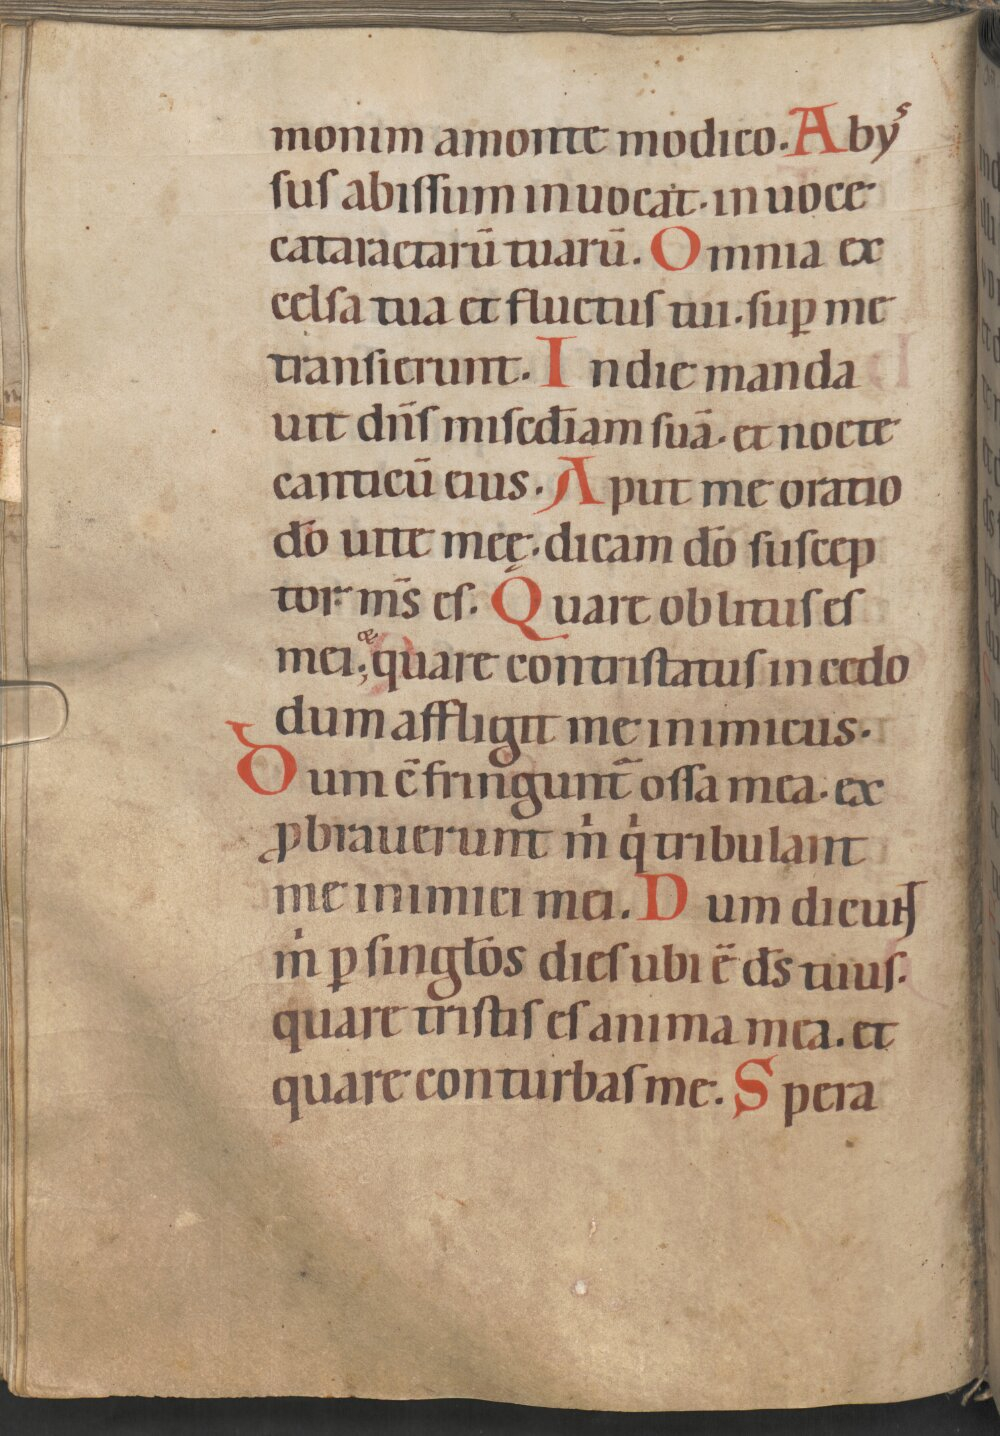 monim a monte modico. Abyˢ
sus abissum inuocat. in uoce
cataractarū tuarū. Omnia ex
celsa tua et fluctus tui. sup̱ me
transierunt. In die manda
uit dn̄s misedīam suā. et nocte
canticū eius. Aput me oratio
dō uite meę. dicam dō suscep
tor ms̄ es. Quare oblitus es
mei; & quare contristatus incedo
dum affligit me inimicus.
Dum c̄fringunt̄ ossa mea. ex
ꝓbrauerunt m̍ q̍ tribulant
me inimici mei. Dum dicunt
m̍ ꝑ singłos dies ubi ē ds̄ tuus.
quare tristis es anima mea. et
quare conturbas me. Spera